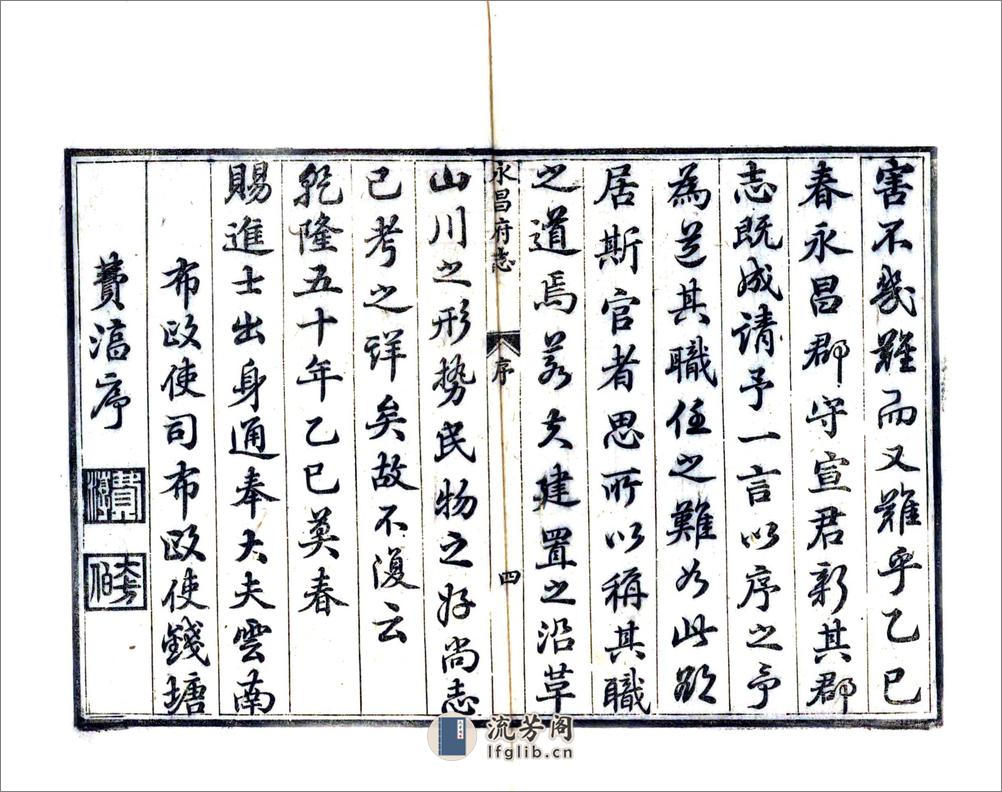 害不幾難而又難乎乙巳
春永昌郡守宣君新其郡
志既成請予一言以序之予
為道其職任之難如此欲
居斯官者思所以稱其職
之道焉若夫建置之沿革
永昌府志 序 四
山川之形勢民物之好尚志
已考之詳矣故不復云
乾隆五十年乙巳莫春
賜進士出身通奉大夫雲南
布政使司布政使錢塘
費淳序
流芳阁
lfglib.cn